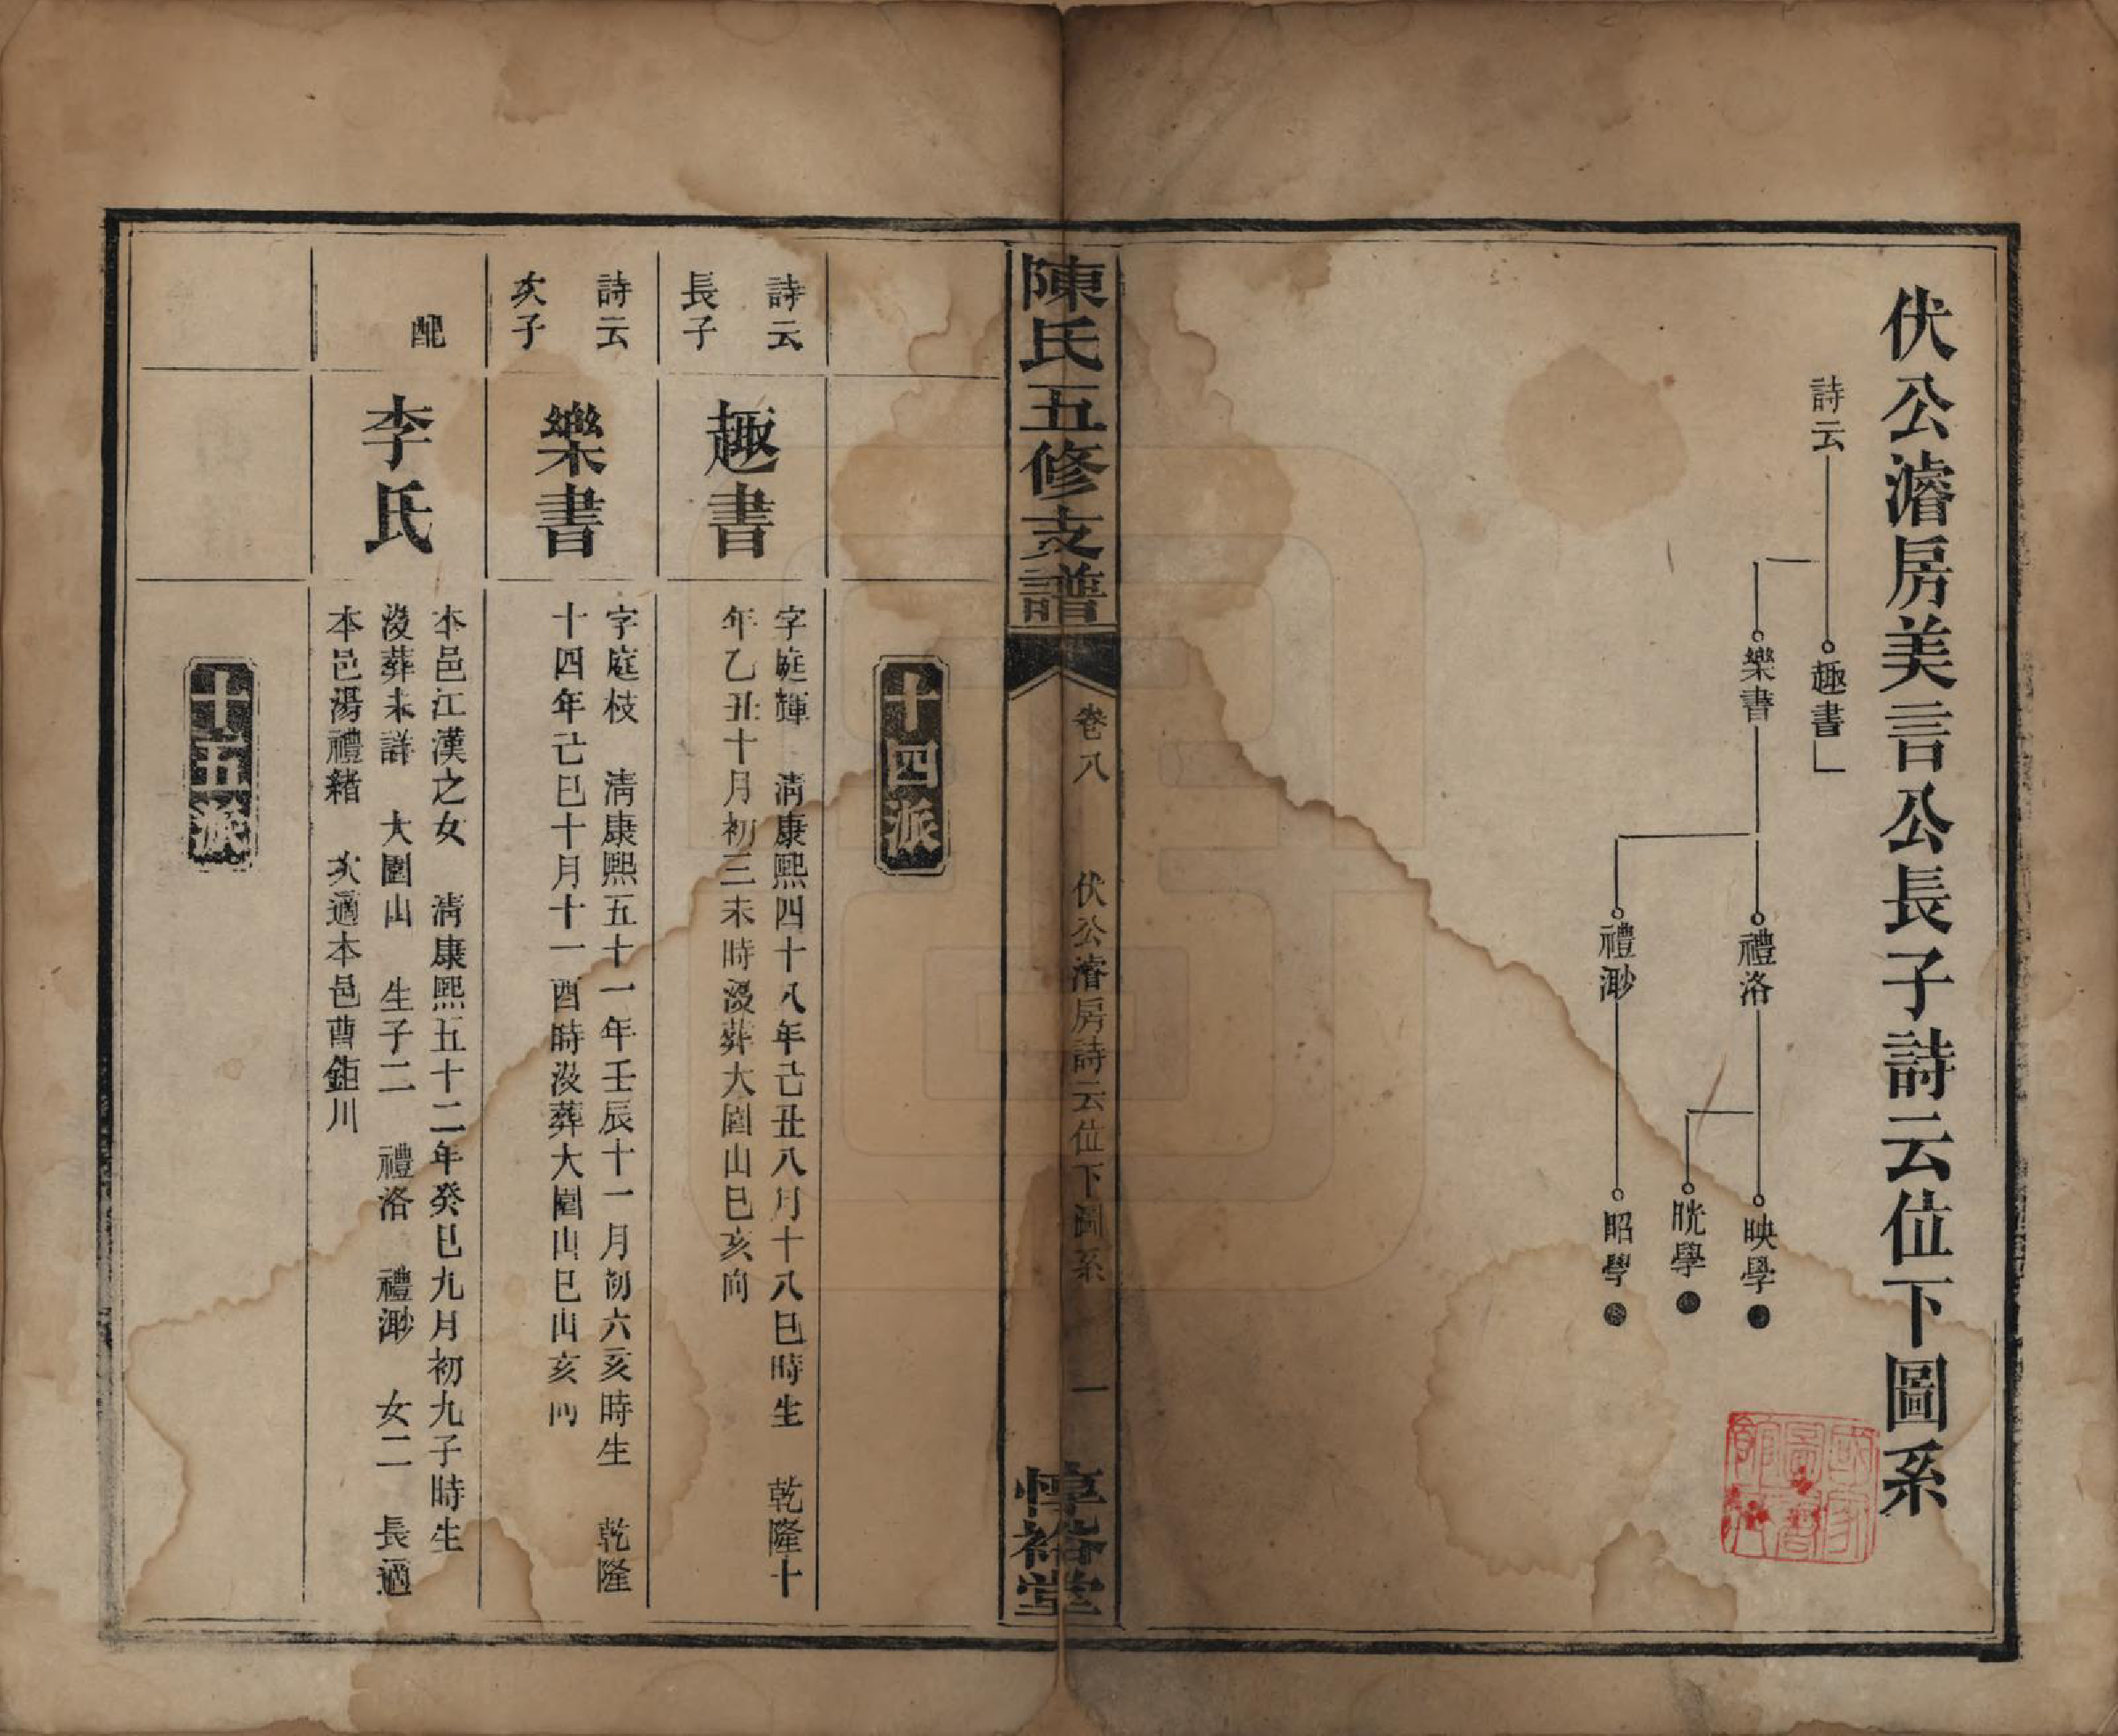 伏公濬房美言公長子詩云位下圖系
詩云
趣書
樂書
禮洛
禮渺
映學
晄學
昭學
陳氏五修支譜
卷八
伏公濬房詩云位下圖系
一
惇裕堂
十四派
詩云
長子
趣書
字庭輝 清康熙四十八年己丑八月十八巳時生 乾隆十
年乙丑十月初三未時沒葬大圍山巳亥向
詩云
次子
樂書
字庭枝 清康熙五十一年壬辰十一月初六亥時生 乾隆
十四年己巳十月十一酉時沒葬大圍山巳山亥向
配
李氏
本邑江漢之女 清康熙五十二年癸巳九月初九子時生
沒葬未詳 大圍山 生子二 禮洛 禮渺 女二 長適
本邑湯禮緒 次適本邑曹鉅川
十五派